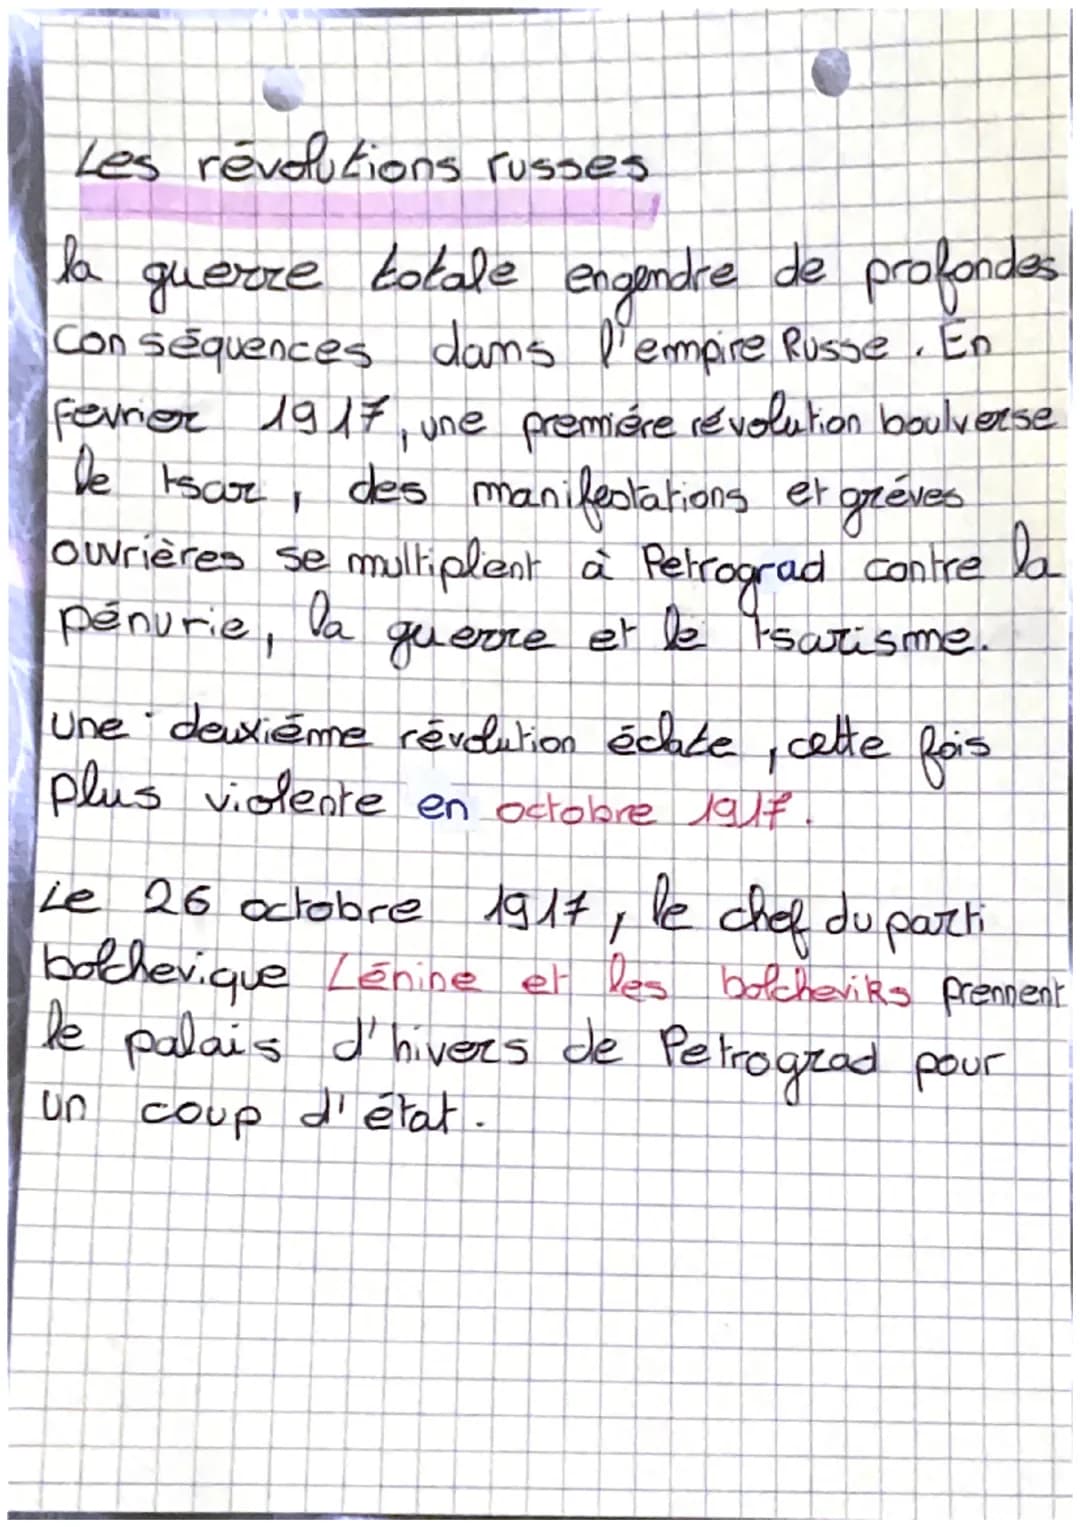 Les révolutions russes
la guerre totale engendre de profondes
conséquences dans l'empire Russe. En
fevrier 1917, une premiére révolution boulverse
le tsar, des manifestations et gréves
ouvrières se multiplent à Petrograd contre la
pénurie, la guerre et le tsarisme.
une deuxiéme révolution éclate, cette fois
plus violente en octobre 1917.
Le 26 octobre 1917, le chef du parti
bolchevique Lénine et les bolcheviks prennent
le palais d'hivers de Petrograd pour
un coup d'état.